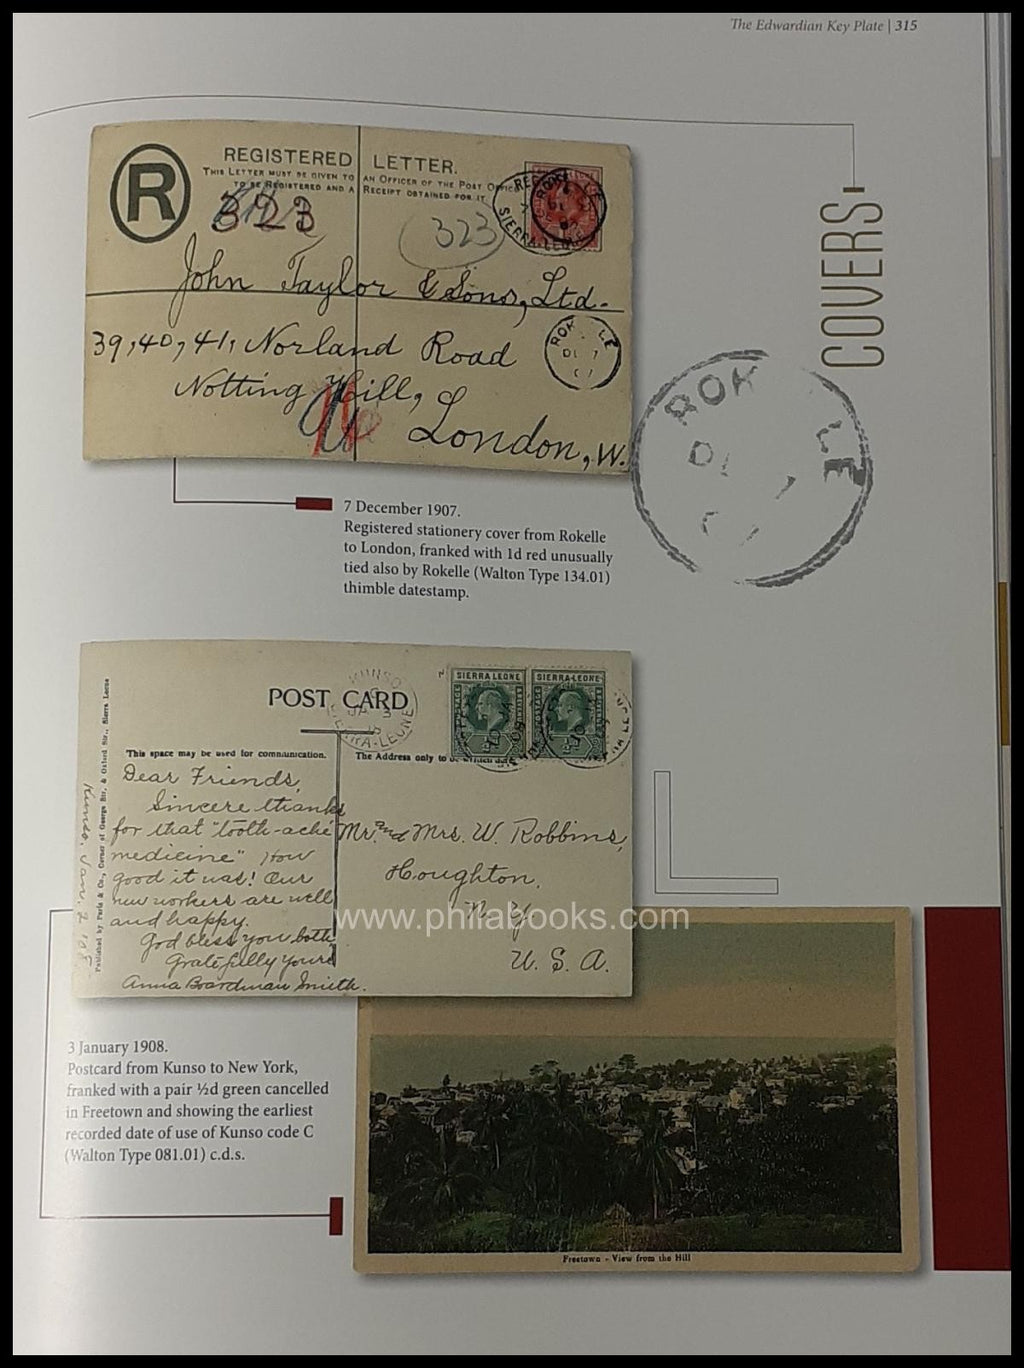 The Edwardian Key Plate | 315
COVERS
R
REGISTERED LETTER.
THIS LETTER MUST BE GIVEN TO AN OFFICER OF THE POST OFFICE
TO BE REGISTERED AND A RECEIPT OBTAINED FOR IT
323
323
SIERRA-LEONE
John Taylor & Sons, Ltd.
39, 40, 41, Norland Road
Notting Hill,
London, W.
ROK LE
DE 7
07
ROK LE
7 December 1907.
Registered stationery cover from Rokelle
to London, franked with 1d red unusually
tied also by Rokelle (Walton Type 134.01)
thimble datestamp.
POST CARD
KUNSO
SIERRA-LEONE
SIERRA LEONE
SIERRA LEONE
This space may be used for communication.
The Address only to be
Dear Friends,
Sincere thanks
for that "tooth-ache
medicine" How
good it was! Our
new workers are well
and happy.
God bless you both
Gratefully yours
Anna Boardman Smith.
Kunso, Jan. 2 '08
Mr. and Mrs. W. Robbins,
Houghton,
N Y
U. S. A.
www.philabooks.com
3 January 1908.
Postcard from Kunso to New York,
franked with a pair ½d green cancelled
in Freetown and showing the earliest
recorded date of use of Kunso code C
(Walton Type 081.01) c.d.s.
Freetown - View from the Hill